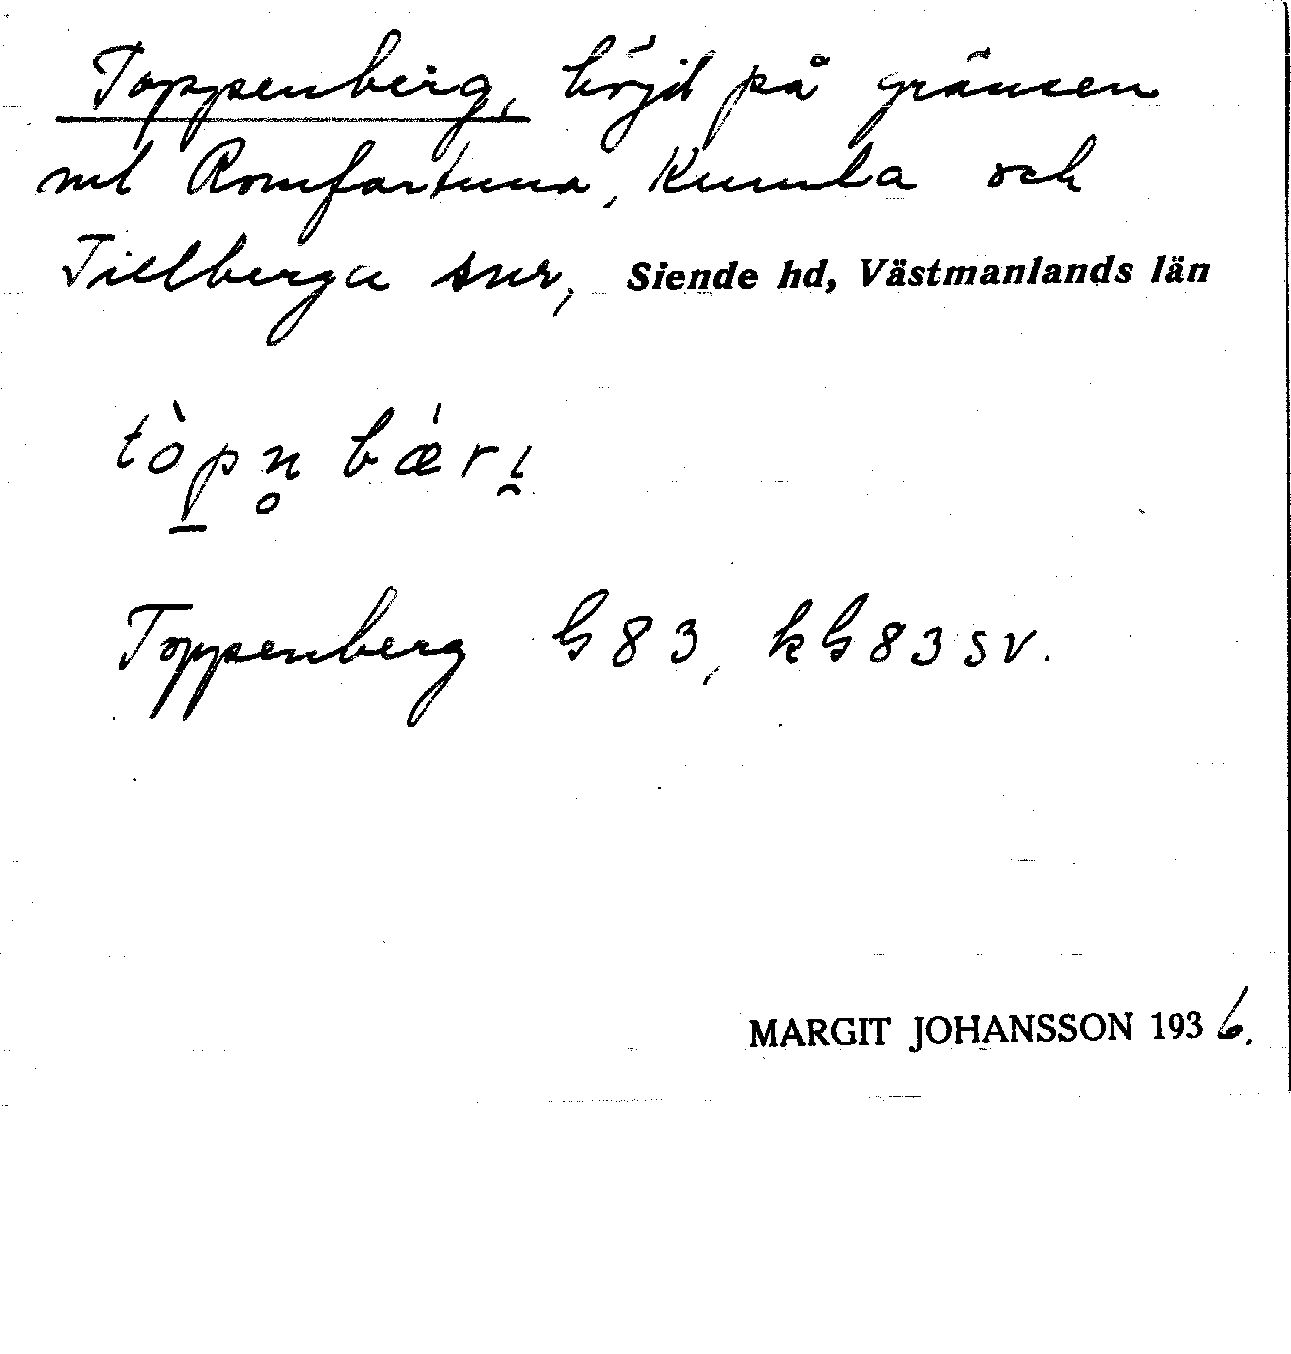 Toppenberg, höjd på gränsen
ml Romfartuna, Kumla och
Tillberga snr, Siende hd, Västmanlands län
tòpn̥ bǽri̯
Toppenberg G83, kG83 sv.
MARGIT JOHANSSON 1936.